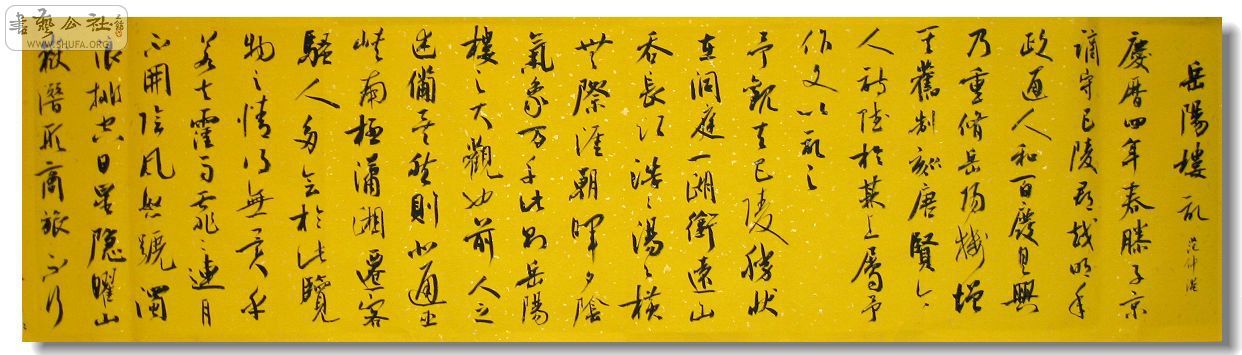 岳陽樓記 范仲淹
慶曆四年春滕子京
謫守巴陵郡越明年
政通人和百廢具興
乃重脩岳陽樓增
其舊制刻唐賢今
人詩賦於其上屬予
作文以記之
予觀夫巴陵勝狀
在洞庭一湖銜遠山
吞長江浩〻湯〻橫
無際涯朝暉夕陰
氣象万千此則岳陽
樓之大觀也前人之
述備矣然則北通巫
峽南極瀟湘遷客
騷人多會於此覽
物之情得無異乎
若夫霪雨霏〻連月
不開陰風怒號濁
浪排空日星隱曜山
嶽潛形商旅不行
書藝公社
WWW.SHUFA.ORG